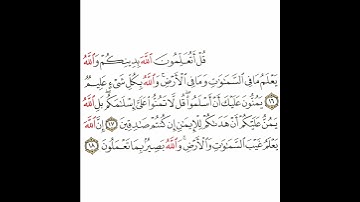 قُلْ أَتُعَلِّمُونَ ٱللَّهَ بِدِينِكُمْ وَٱللَّهُ
يَعْلَمُ مَا فِى ٱلسَّمَٰوَٰتِ وَمَا فِى ٱلْأَرْضِ ۚ وَٱللَّهُ بِكُلِّ شَىْءٍ عَلِيمٌ
﴿١٦﴾ يَمُنُّونَ عَلَيْكَ أَنْ أَسْلَمُوا۟ ۖ قُل لَّا تَمُنُّوا۟ عَلَىَّ إِسْلَٰمَكُم ۖ بَلِ ٱللَّهُ
يَمُنُّ عَلَيْكُمْ أَنْ هَدَىٰكُمْ لِلْإِيمَٰنِ إِن كُنتُمْ صَٰدِقِينَ ﴿١٧﴾ إِنَّ ٱللَّهَ
يَعْلَمُ غَيْبَ ٱلسَّمَٰوَٰتِ وَٱلْأَرْضِ ۚ وَٱللَّهُ بَصِيرٌۢ بِمَا تَعْمَلُونَ ﴿١٨﴾